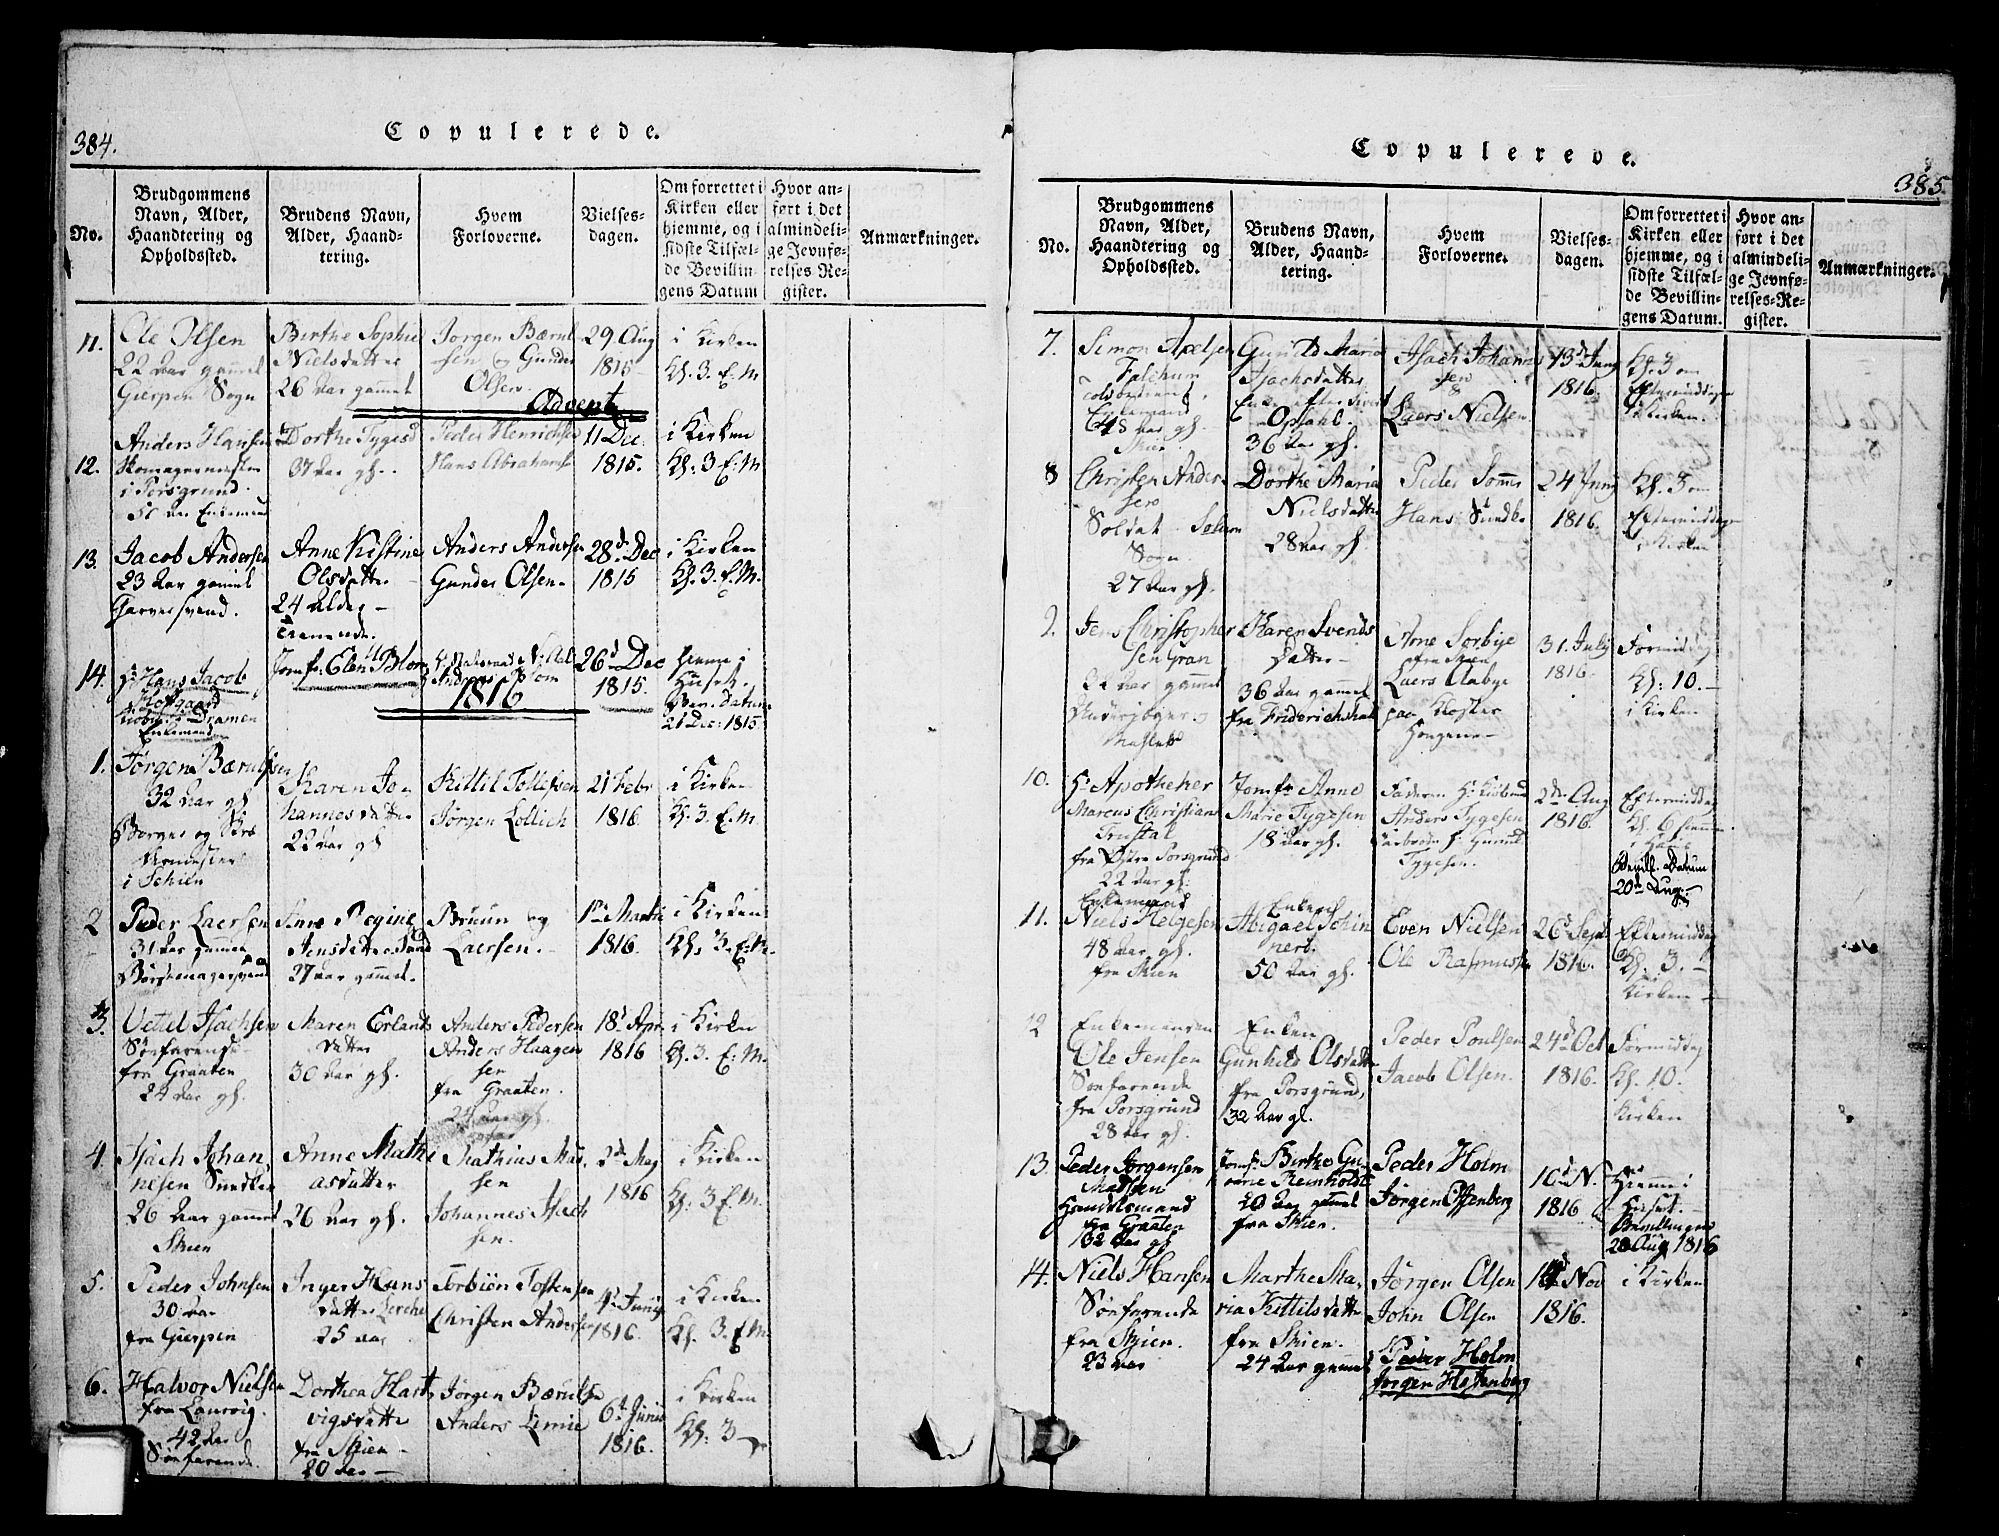 384.
Copulerede.
No.
Brudgommens
Navn, Alder,
Haandtering og
Opholdssted.
Brudens Navn,
Alder, Haand-
tering.
Hvem
Forloverne.
Vielses-
dagen.
Om forrettet i
Kirken eller
hjemme, og i
sidste Tilfæl-
de Bevillin-
gens Datum
Hvor an-
ført i det
almindeli-
ge Jevnfø-
relses Re-
gister.
Anmærkninger.
11.
Ole Olsen
22 Aar gammel
Gierpen Sogn
Birthe Sophie
Nielsdatter
26 Aar gammel
Jørgen Bærul
sen og Gunder
Olsen.
29 Aug
1815
i Kirken
Kl. 3. E. M
Advent
12.
Anders Hansen
Skomagermester
i Porsgrund.
Enkemand
Dorthe Tygesd
37 Aar gl.
Peder Henrichsen
Hans Abrahams
11 Dec.
1815.
i Kirken
Kl: 3 E: M
13.
Jacob Andersen
23 Aar gamel
Garversvend.
Anne Kistine
Olsdatter
24
Anders Andersen
Gunder Olsen.
28d Dec
1815
i Kirken
Kl. 3. E. M.
14.
Hr Hans Jacob
Hofgaard
Dramen
Enkemand
Jomfr: Elen Blom
26d Dec
1815.
hieme i
Huset.
Bev. Datum
21 Dec: 1815.
1816
1.
Jørgen Bærulsen
32 Aar gl
i Schien
Karen Jo-
hannesdatter
22 Aar gl
Kittil Tollefsen
Jørgen Lollich
21 Febr
1816.
i Kirken
Kl. 3. E. M.
2
Peder Laersen
31 Aar gammel
Anne Regine
Jensdatter
27 Aar gammel.
Bruun og
Laersen.
1ste Martii
1816.
i Kirken
Kl: 3. E. M.
3.
Vetel Isachsen
Søefarende
fra Graaten
24 Aar gl.
Maren Erlands
datter
30 Aar gl.
Anders Pedersen
Anders Haagen
sen
fra Graaten.
24 Aar gl.
18d Apr.
1816
i Kirken
Kl. 3. E: M.
4.
Isach Johan
nesen Sundken
26 Aar gamel
Skien
Anne Mathi
asdatter
26 Aar gl.
Mathias Mat
sen
Johannes Isach
sen.
2d May
1816
i Kirken
Kl: 3 E. M.
5.
Peder Johnsen
30 Aar
fra Gierpen
Inger Hans
datter Lerche
25 Aar
Torbiön Tostensen
Christen Andersen
4d Junij
1816.
i Kirken
Kl. 3. E M.
6.
Halvor Nielsen
fra Laurvig.
42 Aar
Søefarende.
Dorthea Hart
vigsdatter
fra Skien
20 Aar
Jørgen Bærulsen
Anders Limie
6d Junii
1816.
i Kirken
Kl: 3
385.
Copulerede.
No.
Brudgommens
Navn, Alder,
Haandtering og
Opholdssted.
Brudens Navn,
Alder, Haand-
tering.
Hvem
Forloverne.
Vielses-
dagen.
Om forrettet i
Kirken eller
hjemme, og i
sidste Tilfæl-
de Bevillin-
gens Datum.
Hvor an-
ført i det
almindeli-
ge Jevnfø-
relses-Re-
gister.
Anmærkninger.
7.
Simon Axelsen
Falchum
Enkemand
48 Aar gl.
Skien
Gunild Maria
Isachsdatter
Enke efter Sivert
Opdahl.
36 Aar gl.
Isach Johannes
sen
Laers Nielsen
13d Juny
1816.
Kl. 3 om
Eftermiddagen
i Kirken.
8
Christen Ander-
sen
Soldat Solum
Sogn
27 Aar gl.
Dorthe Maria
Nielsdatter
28 Aar gl.
Peder Sommer
Hans Sundbe
24 Juny
1816.
Kl. 3 om
Eftermiddagen
i Kirken
9.
Jens Christopher
sen Gran
22 Aar gammel
Karen Svends
datter
36 Aar gammel
fra Friderichshald
Arne Sorbye
fra Skien
Laers Aabye
paa Kloster
31. July
1816.
Formiddag
Kl: 10.
i Kirken
10.
Hr Apotheker
Marcus Christian
fra Østre Porsgrund
22 Aar gl.
Jomfr Anne
Marie Tygesen
18 Aar gl.
Faderen Hr
Anders Tygesen
Tygesen.
2den Aug
1816.
Eftermiddag
Kl. 6 hiemme
i Huset
Bevill. Datum
20d Aug.
11.
Enkemand
Niels Helgesen
48 Aar gl.
fra Skien
Enken
Abigael Schin
nert.
50 Aar gl.
Even Nielsen
Ole Rasmussen
26d Sept
1816.
Eftermiddag
Kl. 3.
Kirken
12
Enkemanden
Ole Jensen
Søefarende
fra Porsgrund
28 Aar gl.
Enken
Gunhild Olsdatter
fra Porsgrund,
32 Aar gl.
Peder Poulsen
Jacob Olsen.
24d Oct
1816.
Formiddag
Kl. 10.
Kirken
13.
Peder Jørgensen
Madsen
Handelsmand
fra Graaten
32 Aar gl
Jomfr. Birthe Gu
Reinholdt
20 Aar gammel
fra Skien.
Peder Holm
Jørgen Effenberg
10d N.
1816
Hieme i
Huset.
Bevillingens
20 Aug 1816
14.
Niels Hansen
Søefarende
fra Skien
23 Aar
Marthe Ma-
ria Kittilsdatter
fra Skien.
24 Aar gammel
Jørgen Olsen
John Olsen
Peder Holm
Jørgen Hefenberg
14d Nov
1816.
i Kirken